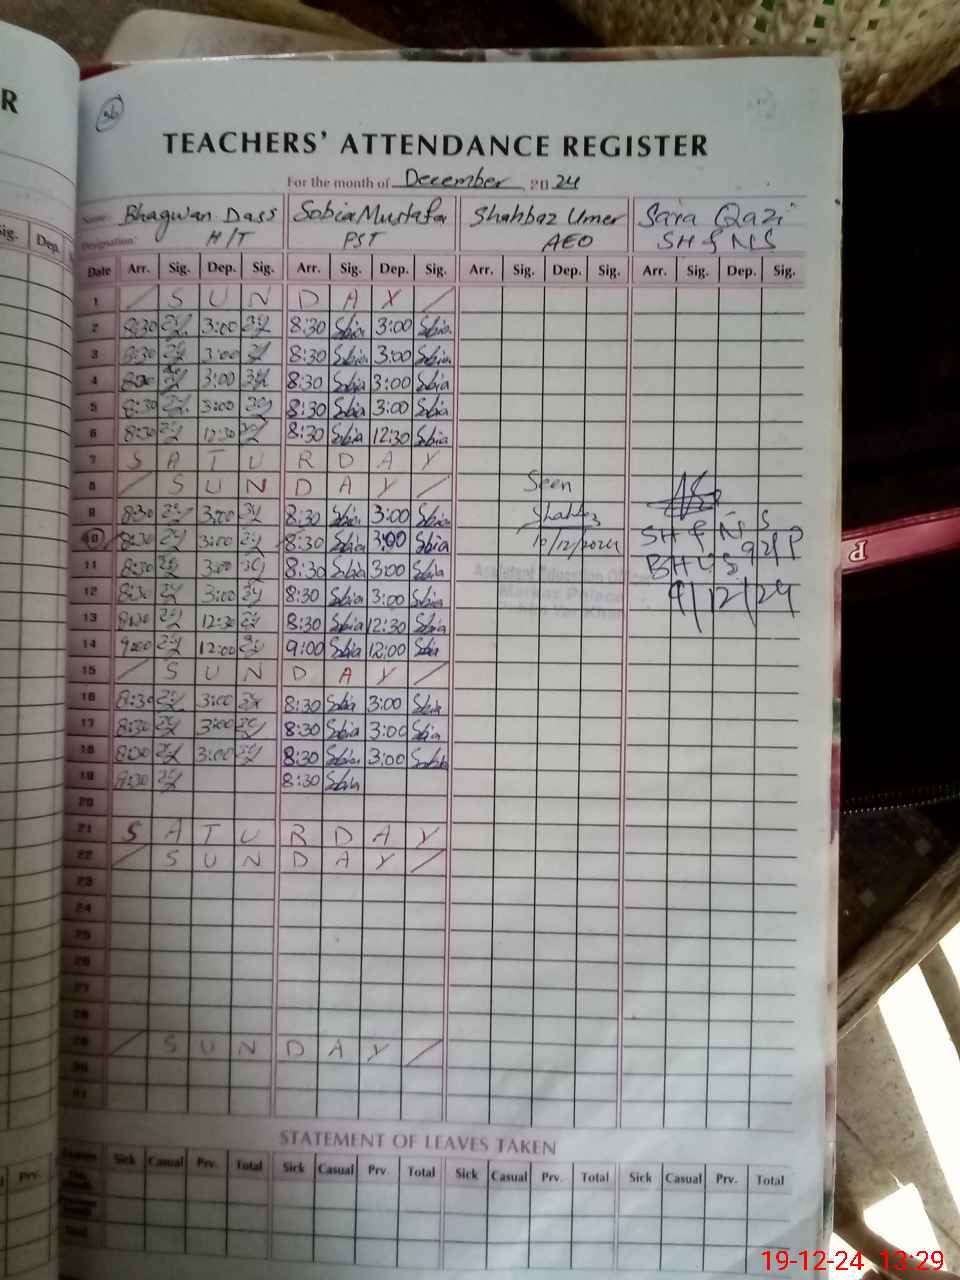 R
36
TEACHERS' ATTENDANCE REGISTER
For the month of December 20 24
Name: Bhagwan Dass Sobia Mustafa Shahbaz Umer Saira Qazi
Designation: H/T PST AEO SH & NS
Sig. Dep.
Date Arr. Sig. Dep. Sig. Arr. Sig. Dep. Sig. Arr. Sig. Dep. Sig. Arr. Sig. Dep. Sig.
1 / S U N D A Y /
2 8:30 3:00 8:30 Sobia 3:00 Sobia
3 8:30 3:00 8:30 Sobia 3:00 Sobia
4 3:00 8:30 Sobia 3:00 Sobia
5 8:30 3:00 8:30 Sobia 3:00 Sobia
6 8:30 12:30 8:30 Sobia 12:30 Sobia
7 S A T U R D A Y
8 / S U N D A Y / Seen
9 8:30 3:00 8:30 Sobia 3:00 Sobia Shahbaz
10 8:30 3:00 8:30 Sobia 3:00 Sobia 10/12/2024 SH & NS
11 8:30 3:00 8:30 Sobia 3:00 Sobia
12 8:30 3:00 8:30 Sobia 3:00 Sobia 9/12/24
13 12:30 8:30 Sobia 12:30 Sobia
14 9:00 12:00 9:00 Sobia 12:00 Sobia
15 / S U N D A Y /
16 8:30 3:00 8:30 Sobia 3:00 Sobia
17 8:30 3:00 8:30 Sobia 3:00 Sobia
18 3:00 8:30 Sobia 3:00 Sobia
19 8:30 8:30 Sobia
20
21 S A T U R D A Y
22 / S U N D A Y /
23
24
25
26
27
28
29 / S U N D A Y /
30
31
STATEMENT OF LEAVES TAKEN
Prv. Leaves Sick Casual Prv. Total Sick Casual Prv. Total Sick Casual Prv. Total Sick Casual Prv. Total
19-12-24 13:29